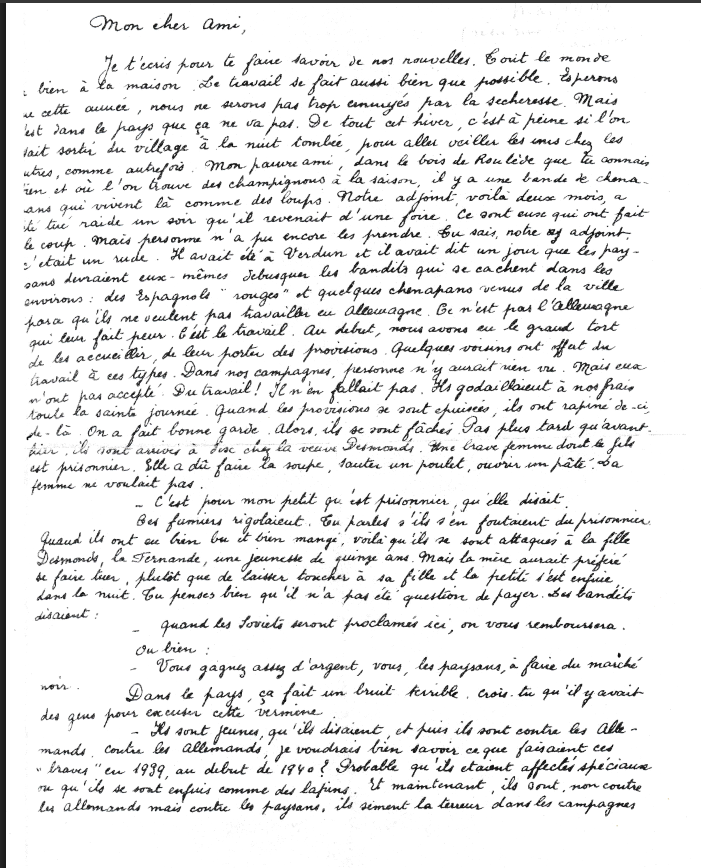 Mon cher Ami,
Je t'écris pour te faire savoir de nos nouvelles. Tout le monde
bien à la maison. Le travail se fait aussi bien que possible. Esperons
ue cette année, nous ne serons pas trop ennuyés par la secheresse. Mais
'est dans le pays que ça ne va pas. De tout cet hiver, c'est à peine si l'on
sait sortir du village à la nuit tombée, pour aller veiller les uns chez les
utres, comme autrefois. Mon pauvre ami, dans le bois de Roulède que tu connais
ien et où l'on trouve des champignons à la saison, il y a une bande de chena-
ans qui vivent là comme des loups. Notre adjoint, voilà deux mois, a
té tué raide un soir qu'il revenait d'une foire. Ce sont eux qui ont fait
le coup. Mais personne n'a pu encore les prendre. Tu sais, notre adjoint,
c'était un rude. Il avait été à Verdun et il avait dit un jour que les pay-
sans devraient eux-mêmes debusquer les bandits qui se cachent dans les
environs : des Espagnols "rouges" et quelques chenapans venus de la ville
parce qu'ils ne veulent pas travailler en Allemagne. Ce n'est pas l'Allemagne
qui leur fait peur. C'est le travail. Au debut, nous avons eu le grand tort
de les accueillir, de leur porter des provisions. Quelques voisins ont offert du
travail à ces types. Dans nos campagnes, personne n'y aurait rien vu. Mais eux
n'ont pas accepté. Du travail! Il n'en fallait pas. Ils godaillaient à nos frais
toute la sainte journée. Quand les provisions se sont epuisées, ils ont rapiné de-ci,
de-là. On a fait bonne garde. Alors, ils se sont fâchés. Pas plus tard qu'avant-
hier, ils sont arrivés à dix chez la veuve Desmonds. Une brave femme dont le fils
est prisonnier. Elle a dû faire la soupe, sauter un poulet, ouvrir un pâté. La
femme ne voulait pas.
- C'est pour mon petit qu'est prisonnier, qu'elle disait.
Ces fumiers rigolaient. Tu parles s'ils s'en foutaient du prisonnier.
Quand ils ont eu bien bu et bien mangé, voilà qu'ils se sont attaqués à la fille
Desmonds, la Fernande, une jeunesse de quinze ans. Mais la mère aurait préféré
se faire tuer, plutôt que de laisser toucher à sa fille et la petite s'est enfuie
dans la nuit. Tu penses bien qu'il n'a pas été question de payer. Les bandits
disaient :
- quand les Soviets seront proclamés ici, on vous remboursera.
Ou bien :
- Vous gagnez assez d'argent, vous, les paysans, à faire du marché
noir.
Dans le pays, ça fait un bruit terrible. crois-tu qu'il y avait
des gens pour excuser cette vermine
- Ils sont jeunes, qu'ils disaient, et puis ils sont contre les Alle-
mands. contre les Allemands, je voudrais bien savoir ce que faisaient ces
"braves" en 1939, au debut de 1940? Probable qu'ils etaient affectés spéciaux
ou qu'ils se sont enfuis comme des lapins. Et maintenant, ils sont, non contre
les allemands mais contre les paysans, ils sèment la terreur dans les campagnes